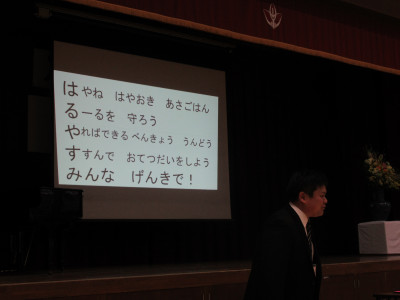 はやね　はやおき　あさごはん
るーるを　守ろう
やればできる べんきょう　うんどう
すすんで　おてつだいをしよう
みんな　げんきで！